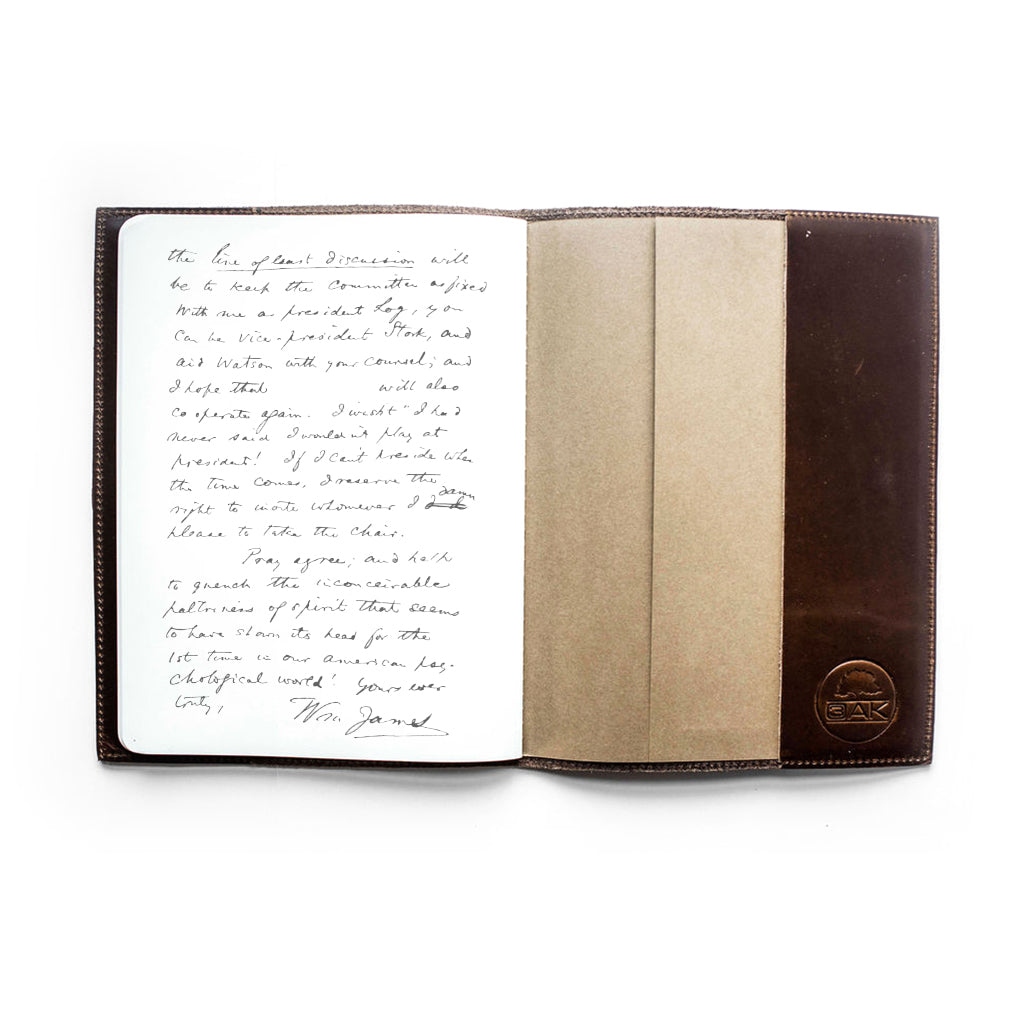 the line of least discussion will
be to keep the committee as fixed
with me as president Log, you
can be vice-president Stork, and
aid Watson with your counsel; and
I hope that will also
cooperate again. I wisht" I had
never said I wouldn't play at
president! If I can't preside when
the time comes, I reserve the
right to invite whomever I damn
please to take the chair.
Pray agree; and help
to quench the inconceivable
paltriness of spirit that seems
to have shown its head for the
1st time in our american psy-
chological world! Yours ever
truly,
Wm James
3OAK